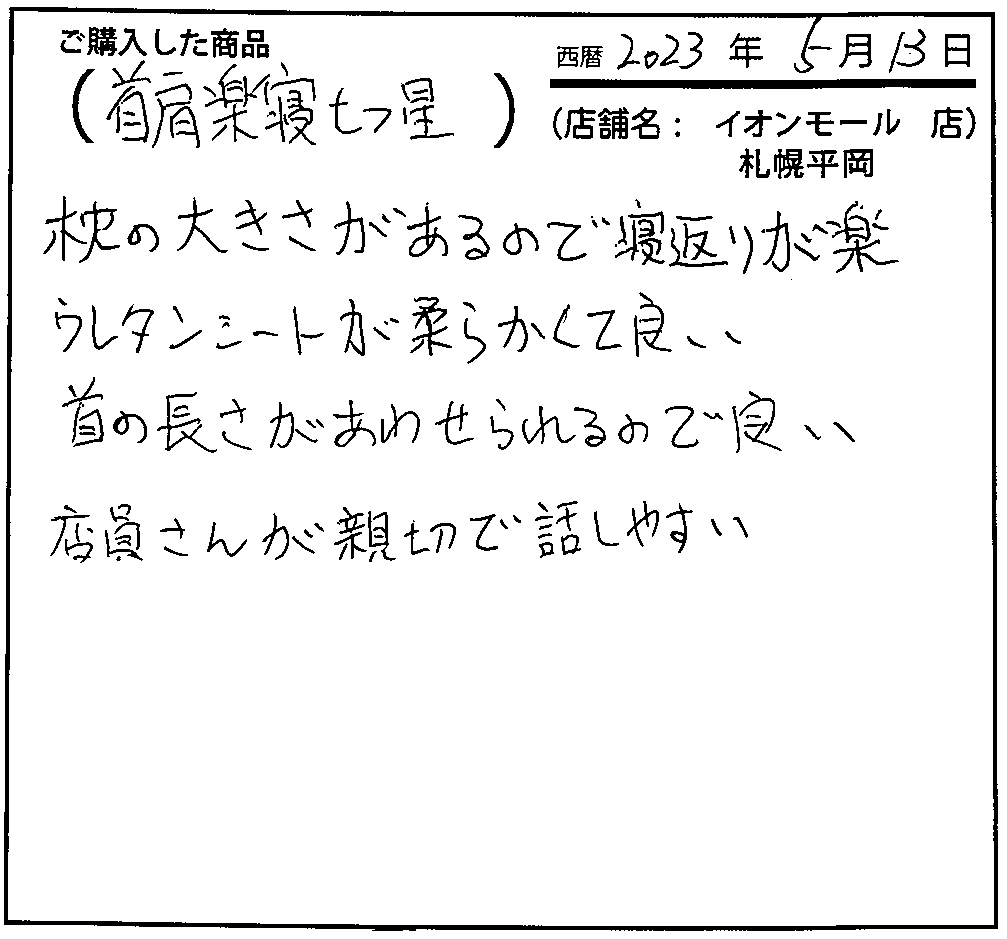 ご購入した商品
(首肩楽寝七つ星)
西暦 2023 年 5 月 13 日
(店舗名: イオンモール 店)
札幌平岡
枕の大きさがあるので寝返りが楽
ウレタンシートが柔らかくて良い
首の長さがあわせられるので良い
店員さんが親切で話しやすい